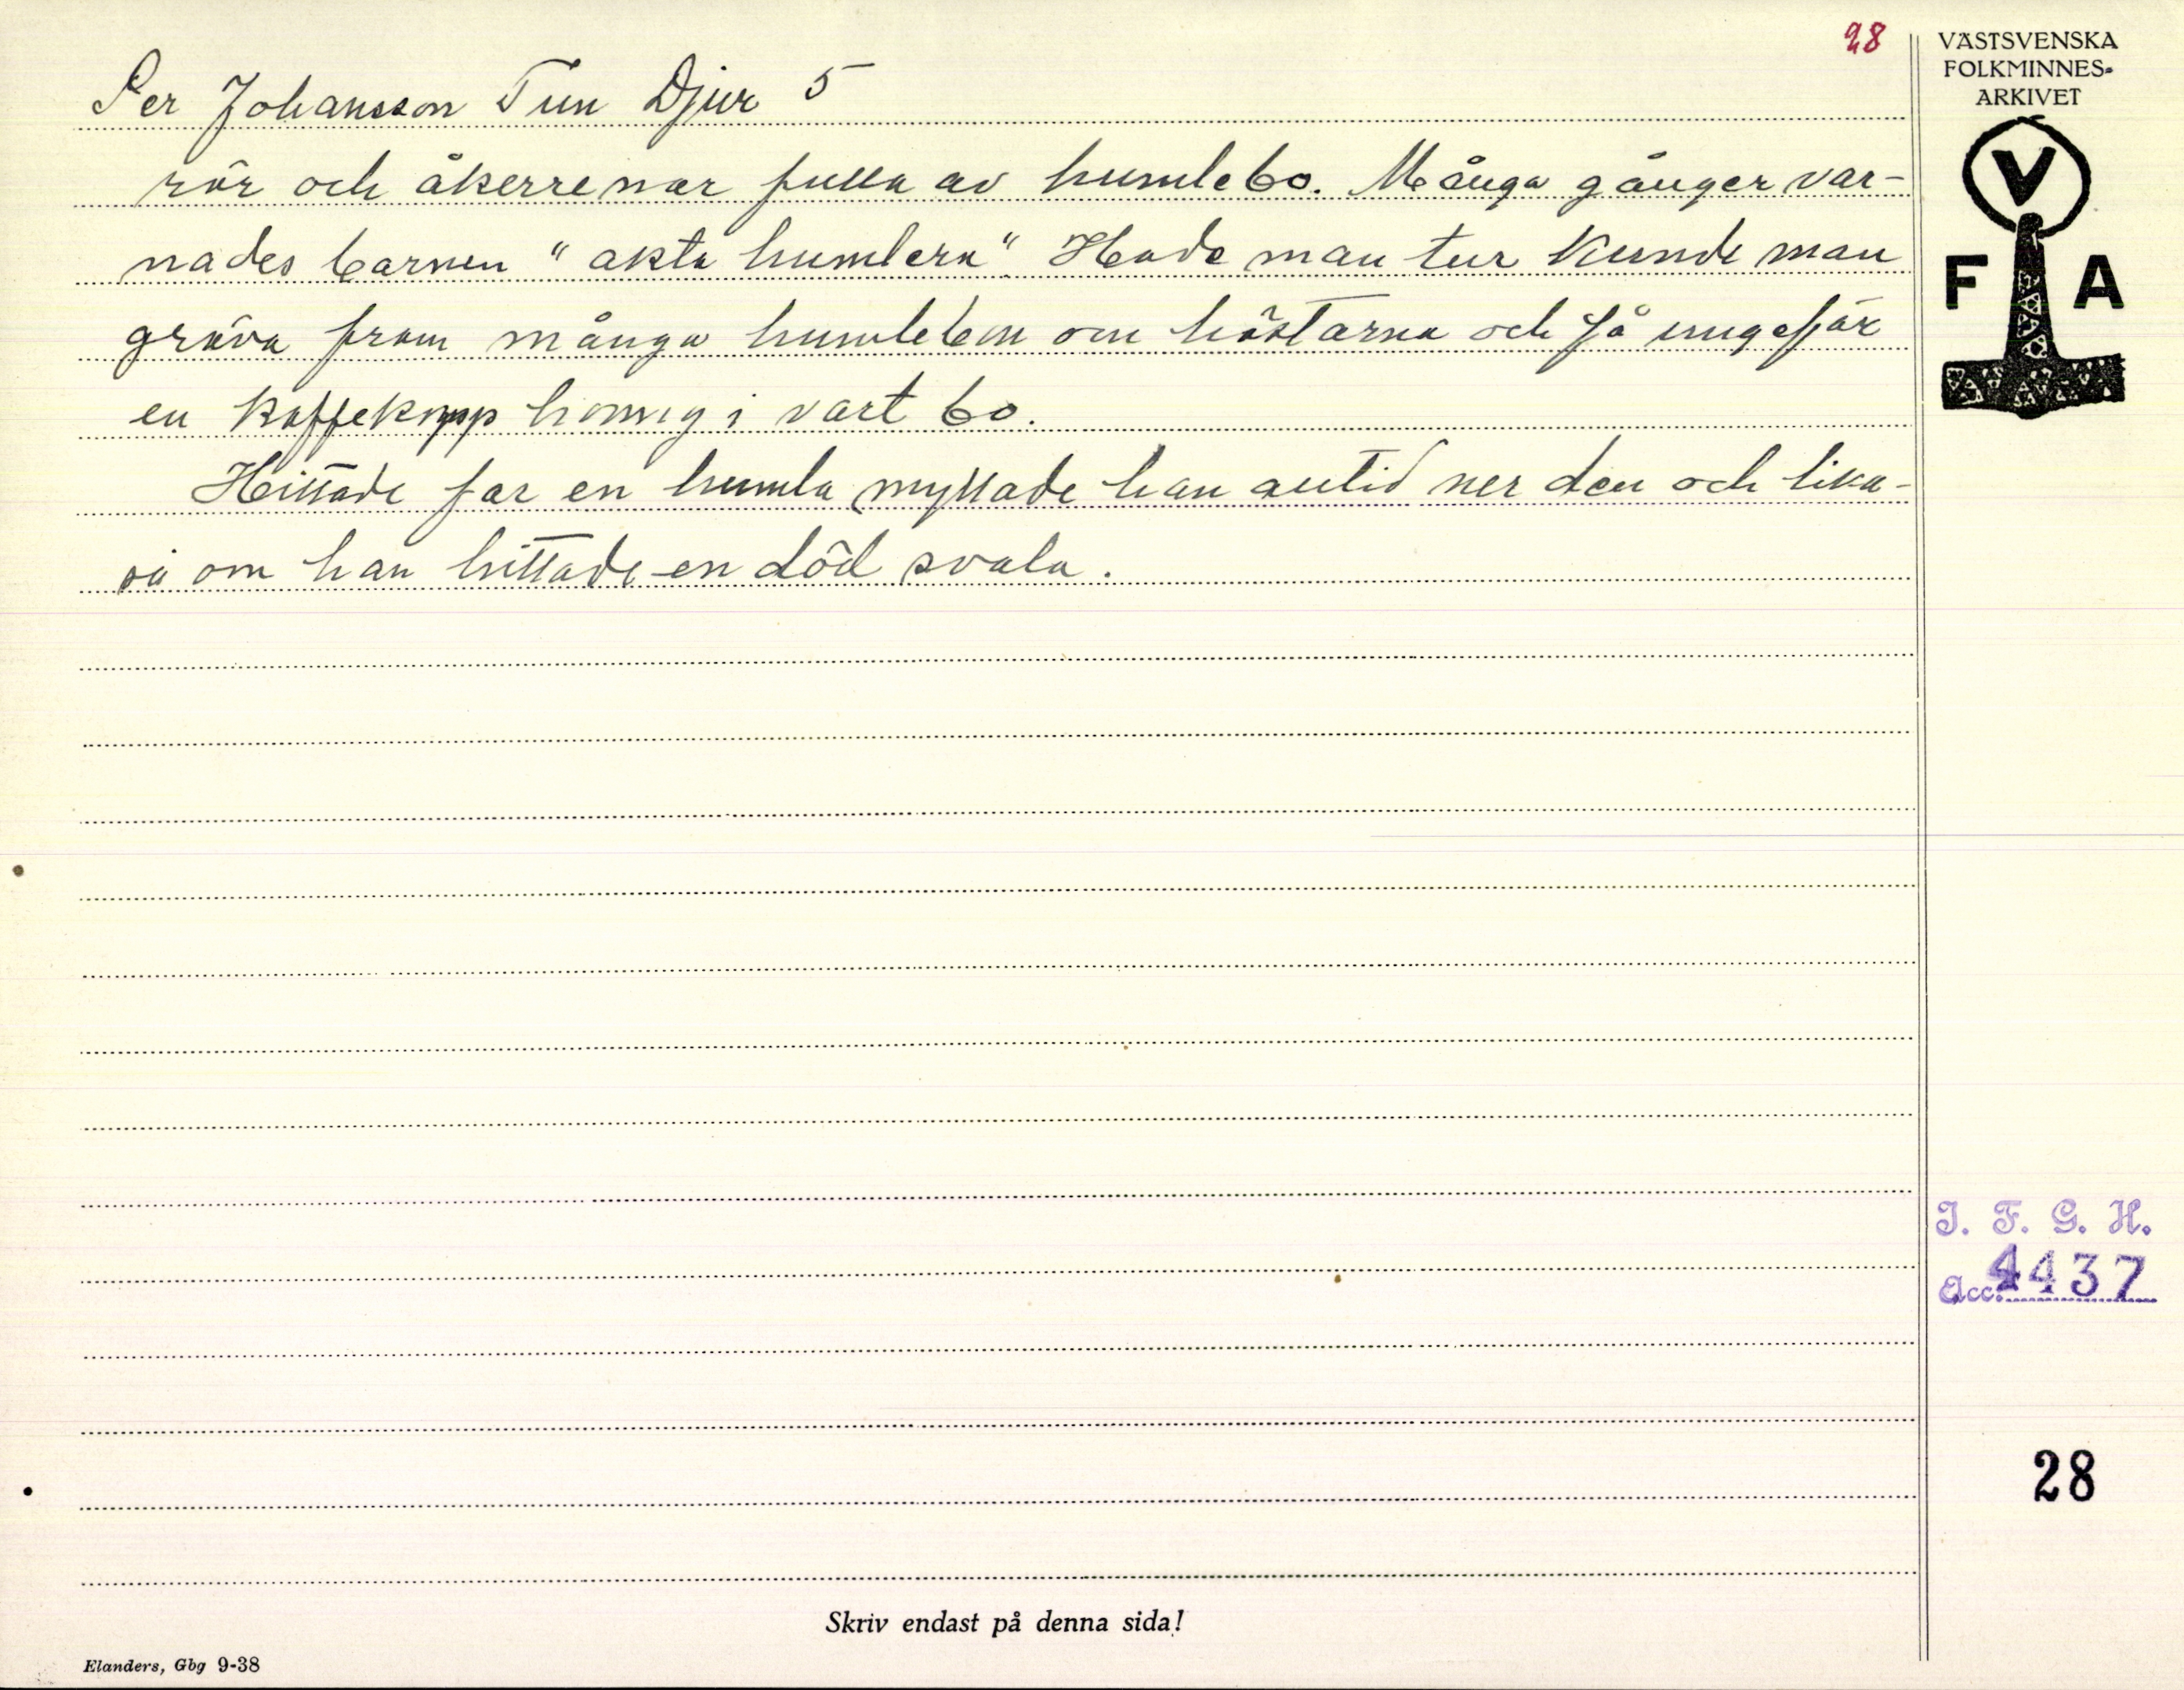 28
Per Johansson Tun Djur 5
rör och åkerrenar fulla av humlebo. Många gånger var-
nades barnen "akta humlera". Hade man tur kunde man
gräva fram många humlebon om höstarna och få ungefär
en kaffekopp honung i vart bo.
Hittade far en humla myllade han alltid ner den och lika-
så om han hittade en död svala.
VÄSTSVENSKA
FOLKMINNES-
ARKIVET
V
F A
I. F. G. H.
Acc. 4437
28
Skriv endast på denna sida!
Elanders, Gbg 9-38